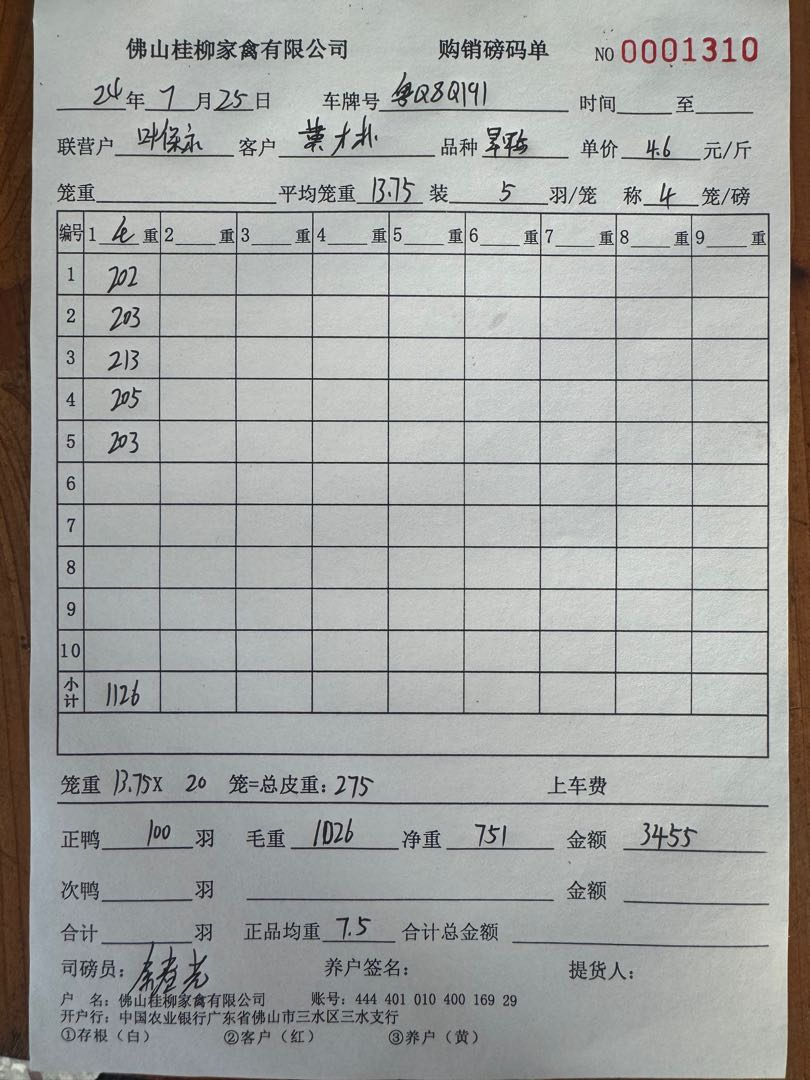 佛山桂柳家禽有限公司 购销磅码单 NO 0001310
24年7月25日 车牌号 粤Q8Q191 时间 至
联营户 叶保永 客户 品种 单价 4.6 元/斤
笼重 平均笼重 13.75 装 5 羽/笼 称 4 笼/磅
编号 1 毛 重 2 重 3 重 4 重 5 重 6 重 7 重 8 重 9 重
1 202
2 203
3 213
4 205
5 203
6
7
8
9
10
小计 1126
笼重 13.75X 20 笼=总皮重: 275 上车费
正鸭 100 羽 毛重 1026 净重 751 金额 3455
次鸭 羽 金额
合计 羽 正品均重 7.5 合计总金额
司磅员: 养户签名: 提货人:
户 名: 佛山桂柳家禽有限公司 账号: 444 401 010 400 169 29
开户行: 中国农业银行广东省佛山市三水区三水支行
①存根(白) ②客户(红) ③养户(黄)